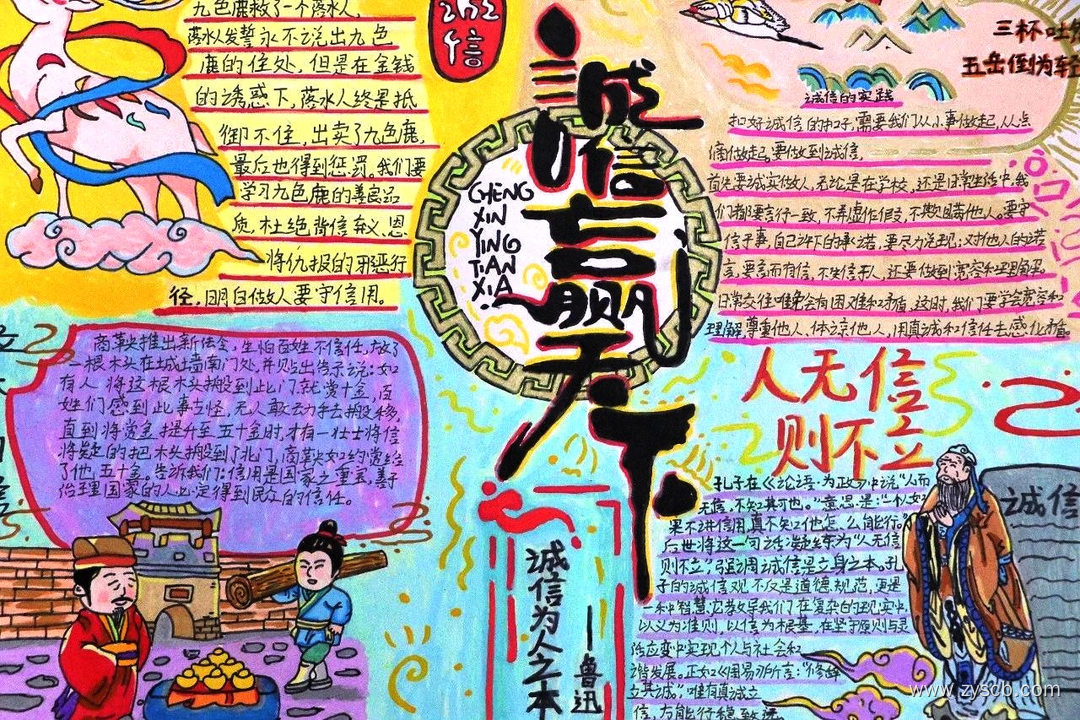 九色鹿救了一个落水人,
落水人发誓永不说出九色
鹿的住处,但是在金钱
的诱惑下,落水人终是抵
御不住,出卖了九色鹿,
最后也得到惩罚。我们要
学习九色鹿的善良品
质,杜绝背信弃义、恩
将仇报的邪恶行
径,明白做人要守信用。
信
诚信赢天下
CHENG
XIN
YING
TIAN
XIA
三杯吐
五岳倒为轻
诚信的实践
扣好诚信的扣子,需要我们从小事做起,从点
滴做起。要做到诚信,
首先要诚实做人,无论是在学校,还是日常生活中,我
们都要言行一致,不弄虚作假,不欺瞒他人。要守
信于事,自己许下的承诺,要尽力兑现;对他人的诺
言,要言而有信,不失信于人,还要做到宽容和理解。
日常交往难免会有困难和矛盾,这时,我们要学会宽容和
理解,尊重他人,体谅他人,用真诚和信任去感化
商鞅推出新法令,生怕百姓不信任,放了
一根木头在城墙南门处,并贴出告示说:如
有人将这根木头搬到北门就赏十金,百
姓们感到此事古怪,无人敢去动手去搬移,
直到将赏金提升至五十金时,才有一壮士将信
将疑的把木头搬到了北门,商鞅如约赏给
了他五十金。告诉我们:信用是国家之重宝,善于
治理国家的人必定得到民众的信任。
人无信
则不立
孔子在《论语·为政》中说“人而
无信,不知其可也。”意思是:“一个人如
果不讲信用,真不知他怎么能行。”
后世将这一句话凝练为“人无信
则不立”强调诚信是立身之本。孔
子的诚信观不仅是道德规范,更是
一种智慧,它教导我们在复杂的现实中,
以义为准则,以信为根基,在坚守原则与灵
活应变中实现个人与社会和
谐发展。正如《周易》所言:“修辞
立其诚”,唯有真诚立
信,方能行稳致远
诚信
诚信为人之本
——鲁迅
www.zyscb.com